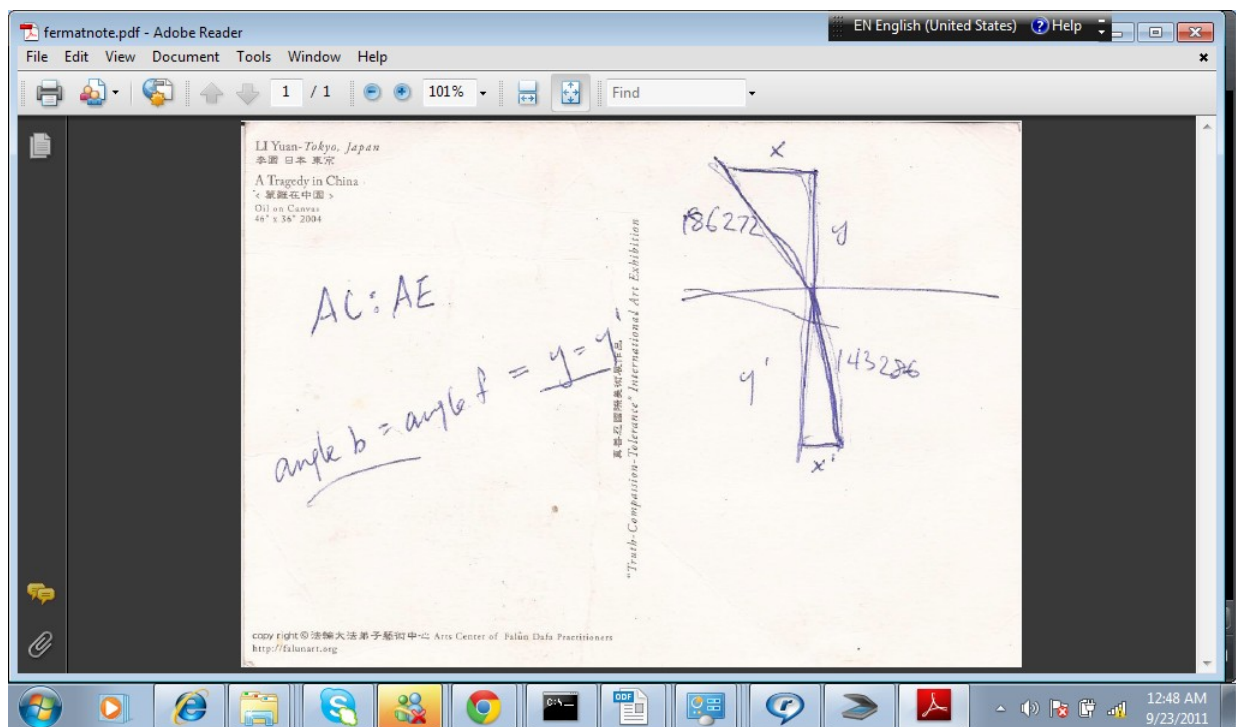 fermatnote.pdf - Adobe Reader
EN English (United States) Help
File Edit View Document Tools Window Help
1 / 1 101% Find
LI Yuan-Tokyo, Japan
李園 日本 東京
A Tragedy in China
Oil on Canvas
46" x 36" 2004
AC : AE
angle b = angle f = y = y'
"Truth-Compassion-Tolerance" International Art Exhibition
真善忍國際美術展作品
x
186272
y
y'
143286
x'
copyright © 法輪大法弟子藝術中心 Arts Center of Falun Dafa Practitioners
http://falunart.org
C:\_
ODF
12:48 AM
9/23/2011